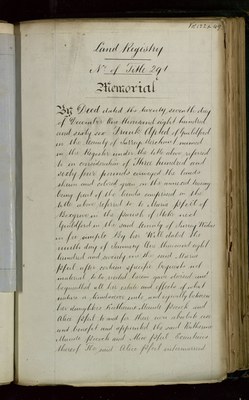 Land Registry
No. of Title 291
Memorial
By Deed dated the twenty seventh day
of December One thousand eight hundred
and sixty six Frank Apted of Guildford
in the County of Surrey Merchant named
in the Register under the title above referred
to in consideration of Three hundred and
sixty five pounds conveyed the lands
shewn and colored green in the annexed
being part of the lands comprised in the
title above referred to to Maria
in the parish of Stoke next
Guildford in the said County of Surrey Widow
in fee simple By her Will dated the
ninth day of January One thousand eight
hundred and seventy six the said Maria
after certain specific bequests and
devised and
bequeathed all her estate and effects of what
nature or kind soever unto and equally between
her daughters Katherine Maude and
Alice to and for their own absolute use
and benefit and appointed the said Katherine
Maude and Alice
the said Alice intermarried